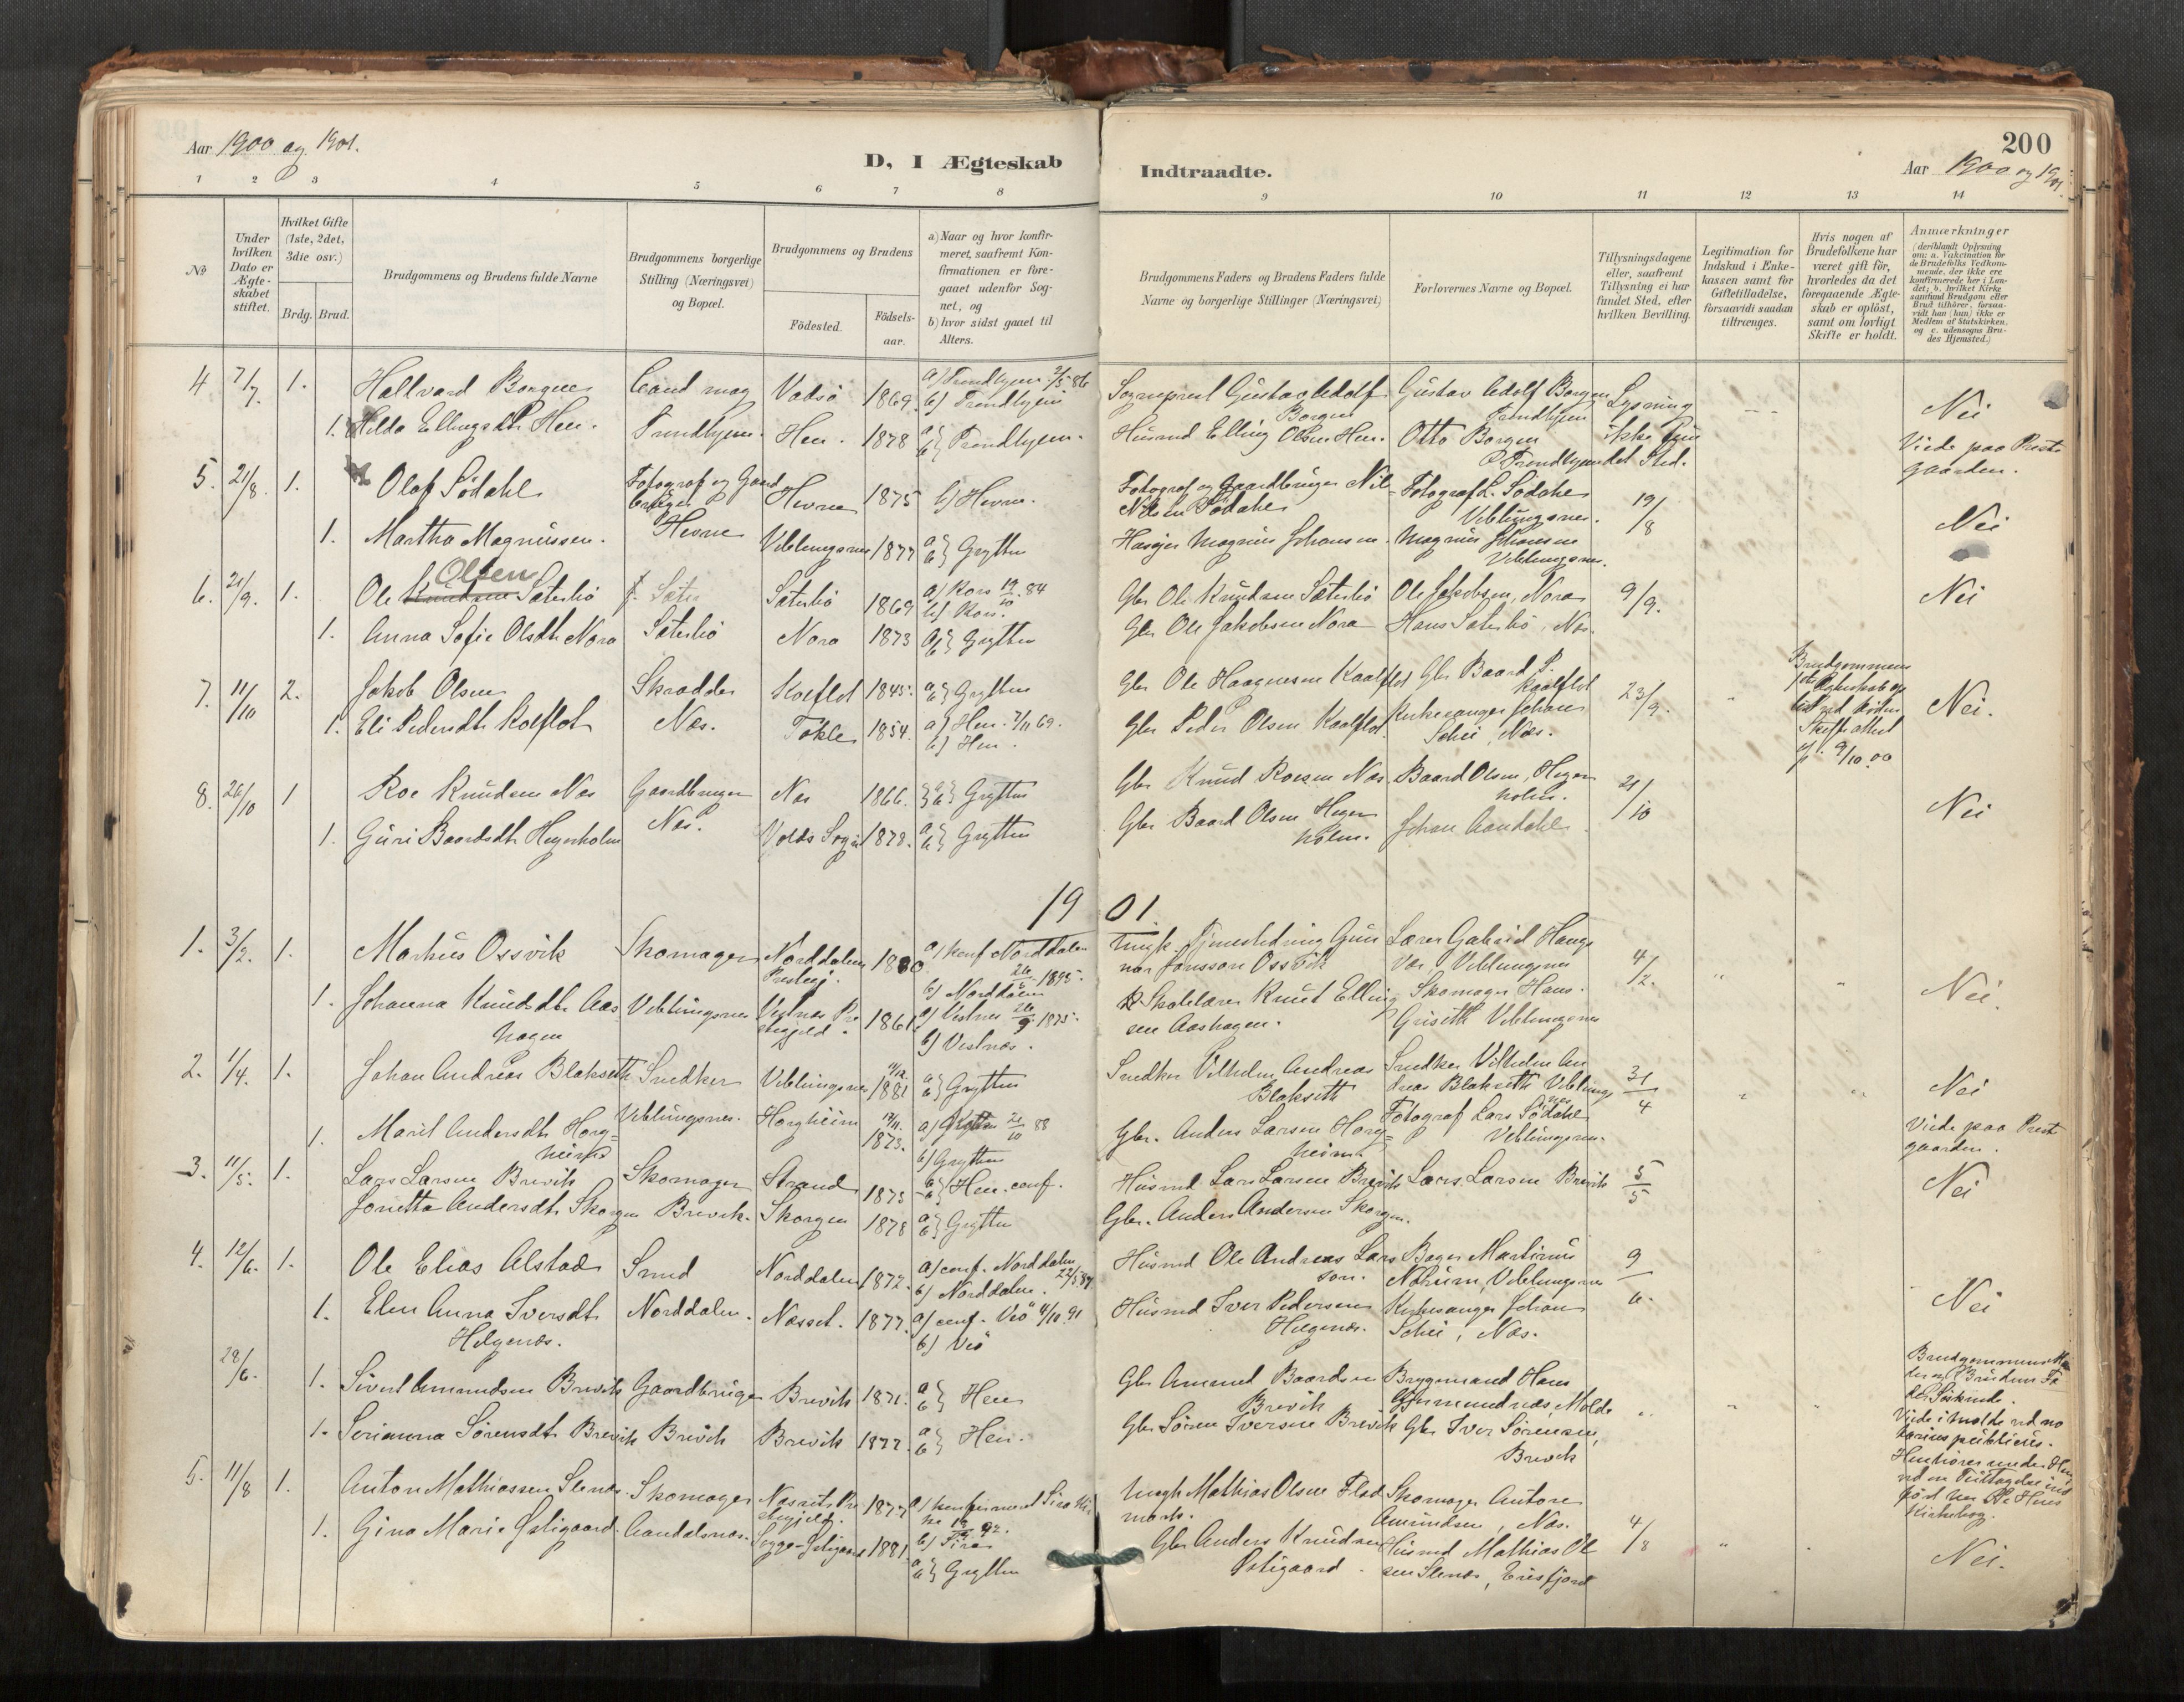 Aar 1900 og 1901.
D, I Ægteskab
Indtraadte.
200
Aar 1900 og 1901.
1 2 3 4 5 6 7 8
9 10 11 12 13 14
No
Under hvilken Dato er Ægteskabet stiftet.
Hvilket Gifte (1ste, 2det, 3die osv.)
Brdg. Brud.
Brudgommens og Brudens fulde Navne
Brudgommens borgerlige Stilling (Næringsvei) og Bopæl.
Brudgommens og Brudens
Födested.
Födsels-aar.
a) Naar og hvor konfirmeret, saafremt Konfirmationen er foregaaet udenfor Sognet, og
b) hvor sidst gaaet til Alters.
Brudgommens Faders og Brudens Faders fulde Navne og borgerlige Stillinger (Næringsvei)
Forlovernes Navne og Bopæl.
Tillysningsdagene eller, saafremt Tillysning ei har fundet Sted, efter hvilken Bevilling.
Legitimation for Indskud i Enkekassen samt for Giftetilladelse, forsaavidt saadan tiltrænges.
Hvis nogen af Brudefolkene har været gift för, hvorledes da det foregaaende Ægteskab er oplöst, samt om lovligt Skifte er holdt.
Anmærkninger
(deriblandt Oplysning om: a. Vakcination for de Brudefolks Vedkommende, der ikke ere konfirmerede her i Landet; b. hvilket Kirkesamfund Brudgom eller Brud tilhörer, forsaavidt han (hun) ikke er Medlem af Statskirken, og c. udensogns Brudes Hjemsted.)
4 7/7. 1. Hallvard Borgen Cand mag Vadsö 1869. a) Trondhjem 2/5 86 b) Trondhjem Sogneprest Gustav Adolf Borgen Gustav Adolf Borgen Trondhjem Lysning Nei
1. Hilda Ellingsdtr Hen. Trondhjem. Hen. 1878 a b} Trondhjem. Husmd Elling Olsen Hen. Otto Borgen Trondhjem ikke fundet Sted. Viede paa Prestegaarden.
5. 21/8. 1. Olaf Södahl Fotograf og Gaardbruger Hevne 1875 b) Hevne. Fotograf og Gaardbruger Nils Nilsen Södahl Fotograf L. Södahl Veblungsnes. 19/8
1. Martha Magnussen. Hevne Veblungsnes 1877 a b} Grytten Magnus Johansen. Magnus Johansen Veblungsnes. Nei
6. 21/9. 1. Ole Olsen Sæterbö Sæterbö 1869 a) Kors 19/10 84 b) Kors. Gbr Ole Knudsen Sæterbö Ole Jakobsen, Nora 9/9. Nei
1. Anna Sofie Olsdtr Nora Sæterbö Nora 1873 a b} Grytten Gbr Ole Jakobsen Nora Hans Sæterbö, Næs.
7. 11/10 2. Jakob Olsen Skrædder Kolflot 1845. a b} Grytten Gbr Ole Haagensen Kaalflot Gbr Baard P. Kaalflot 23/9. Nei.
1. Eli Pedersdtr Kolflot Næs. Tokle 1854. a) Hen. 7/11 69. b) Hen. Gbr Peder Olsen Kaalflot. Kirkesanger Johan Schei, Næs.
Brudgommens 9/10 00
8. 26/10 1 Roe Knudsen Næs Gaardbruger Næs 1866. a b} Grytten Gbr Knud Roesen Næs. Baard Olsen, Hegerholm. 21/10 Nei
1. Guri Baardsdtr Hegerholm Næs. Volds Sogn 1878. a b} Grytten Gbr Baard Olsen Hegerholm. Johan Aandahl
1901.
1. 3/2. 1. Markus Ossvik Skomager Norddalen Prestegj. 1880 a) konf Norddalen 26/5 1895. b) Norddalen Ungk. Gunnar Jonsson Ossvik Lærer Gabriel Veblungsnes 4/2. Nei
1. Johanna Knudsdtr Aashagen Veblungsnes Vestnæs Prestegjeld. 1861. a) Vestnes 26/9 1875. b) Vestnæs. Skolelærer Knut Ellingsen Aashagen. Skomager Hans Grisetth Veblungsnes
2. 1/4. 1. Johan Andreas Blakseth Snedker Veblungsnes 1881 a b} Grytten Snedker Vilhelm Andreas Blakseth Snedker Vilhelm Andreas Blakseth Veblungsnes 31/4 Nei
1. Marit Andersdtr Horgheim Veblungsnes. Horgheim 17/11. 1873. a) Grytten 21/10 88 b) Grytten Gbr. Anders Larsen Horgheim Fotograf Lars Södahl Veblungsnes. Viede paa Prestegaarden.
3. 11/5. 1. Lars Larsen Brevik Skomager Strand 1875 a b} Hen. conf. Husmd Lars Larsen Brevik Lars Larsen Brevik 5/5 Nei
Jonetta Andersdtr Skorgen Brevik. Skorgen 1878 a b} Grytten Gbr. Anders Andersen Skorgen.
4. 12/6. 1. Ole Elias Alstad Smed Norddalen 1872. a) conf. Norddalen 22/5 87 b) Norddalen. Husmd Ole Andreas Larsson. Bager Martinus Norum, Veblungsnes 9/6. Nei
1. Elen Anna Iversdtr Helgenæs. Norddalen. Nesset. 1877. a) conf. Veö 4/10 91 b) Veö Husmd Iver Pedersen Helgenæs. Kirkesanger Johan Schei, Næs.
28/6. 1. Sivert Amundsen Brevik Gaardbruger Brevik 1871. a b} Hen Gbr Amund Baardsen Brevik Bryggemand Hans Gammundnæs Molde
1. Serianna Sörensdtr Brevik Brevik Brevik 1877. a b} Hen. Gbr Sören Iversen Brevik Gbr Iver Sörensen, Brevik
Brudgommens Moder og Brudens Fader Söskende.
Viede i Molde ved notarius publicus.
5. 11/8 1. Anton Mathiassen Slenæs Skomager Næssets Prestegjeld. 1877 a) konfirmeret Sira Kirke 92. b) Sira Ungk Mathias Olsen Flademark. Skomager Antone Amundsen, Næs. 4/8 Nei.
1. Gina Marie Östigaard Aandalsnæs. Sogge-Östigaard 1881. a b} Grytten Gbr Anders Knudsen Östigaard. Husmd Mathias Olsen Slenæs, Eresfjord